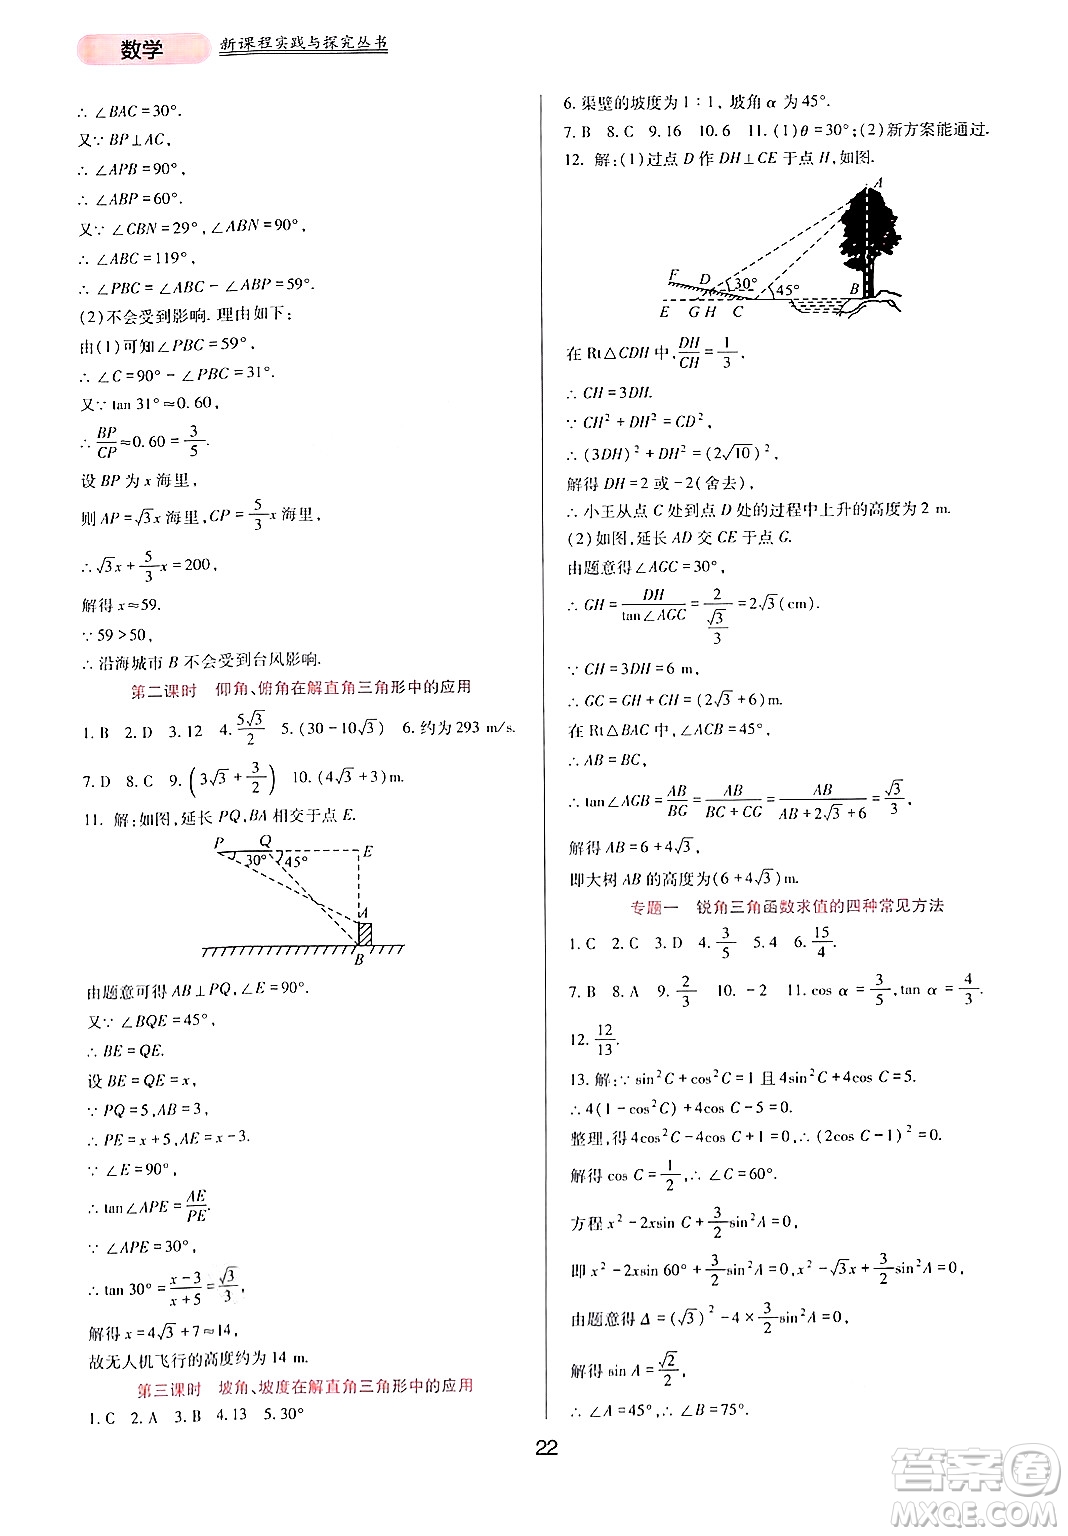 数学 新课程实践与探究丛书
∴ ∠BAC=30°.
又∵ BP⊥AC,
∴ ∠APB=90°,
∴ ∠ABP=60°.
又∵ ∠CBN=29°,∠ABN=90°,
∴ ∠ABC=119°,
∴ ∠PBC=∠ABC-∠ABP=59°.
(2)不会受到影响.理由如下:
由(1)可知∠PBC=59°,
∴ ∠C=90°-∠PBC=31°.
又∵ tan 31°≈0.60,
∴ BP/CP≈0.60=3/5.
设 BP 为 x 海里,
则 AP=√3x 海里,CP=5/3x 海里,
∴ √3x+5/3x=200,
解得 x≈59.
∵ 59>50,
∴ 沿海城市 B 不会受到台风影响.
第二课时 仰角、俯角在解直角三角形中的应用
1. B 2. D 3. 12 4. 5√3/2 5. (30-10√3) 6. 约为 293 m/s.
7. D 8. C 9. (3√3+3/2) 10. (4√3+3)m.
11. 解:如图,延长 PQ,BA 相交于点 E.
P Q E
30° 45°
A
B
由题意可得 AB⊥PQ,∠E=90°.
又∵ ∠BQE=45°,
∴ BE=QE.
设 BE=QE=x,
∵ PQ=5,AB=3,
∴ PE=x+5,AE=x-3.
∵ ∠E=90°,
∴ tan∠APE=AE/PE.
∵ ∠APE=30°,
∴ tan 30°=(x-3)/(x+5)=√3/3,
解得 x=4√3+7≈14,
故无人机飞行的高度约为 14 m.
第三课时 坡角、坡度在解直角三角形中的应用
1. C 2. A 3. B 4. 13 5. 30°
6. 渠壁的坡度为 1∶1,坡角 α 为 45°.
7. B 8. C 9. 16 10. 6 11. (1)θ=30°;(2)新方案能通过.
12. 解:(1)过点 D 作 DH⊥CE 于点 H,如图.
A
F D 30° 45° B
E G H C
在 Rt△CDH 中,DH/CH=1/3,
∴ CH=3DH.
∵ CH²+DH²=CD²,
∴ (3DH)²+DH²=(2√10)²,
解得 DH=2 或 -2(舍去).
∴ 小王从点 C 处到点 D 处的过程中上升的高度为 2 m.
(2)如图,延长 AD 交 CE 于点 G.
由题意得∠AGC=30°,
∴ GH=DH/tan∠AGC=2/(√3/3)=2√3(cm).
∵ CH=3DH=6 m,
∴ GC=GH+CH=(2√3+6)m.
在 Rt△BAC 中,∠ACB=45°,
∴ AB=BC,
∴ tan∠AGB=AB/BG=AB/(BC+CG)=AB/(AB+2√3+6)=√3/3,
解得 AB=6+4√3,
即大树 AB 的高度为(6+4√3)m.
专题一 锐角三角函数求值的四种常见方法
1. C 2. C 3. D 4. 3/5 5. 4 6. 15/4.
7. B 8. A 9. 2/3 10. -2 11. cos α=3/5,tan α=4/3.
12. 12/13.
13. 解:∵ sin²C+cos²C=1 且 4sin²C+4cos C=5.
∴ 4(1-cos²C)+4cos C-5=0.
整理,得 4cos²C-4cos C+1=0,∴ (2cos C-1)²=0.
解得 cos C=1/2,∴ ∠C=60°.
方程 x²-2xsin C+3/2sin²A=0,
即 x²-2xsin 60°+3/2sin²A=0,x²-√3x+3/2sin²A=0,
由题意得 Δ=(√3)²-4×3/2sin²A=0,
解得 sin A=√2/2.
∴ ∠A=45°,∴ ∠B=75°.
22
答案圈
MXQE.COM